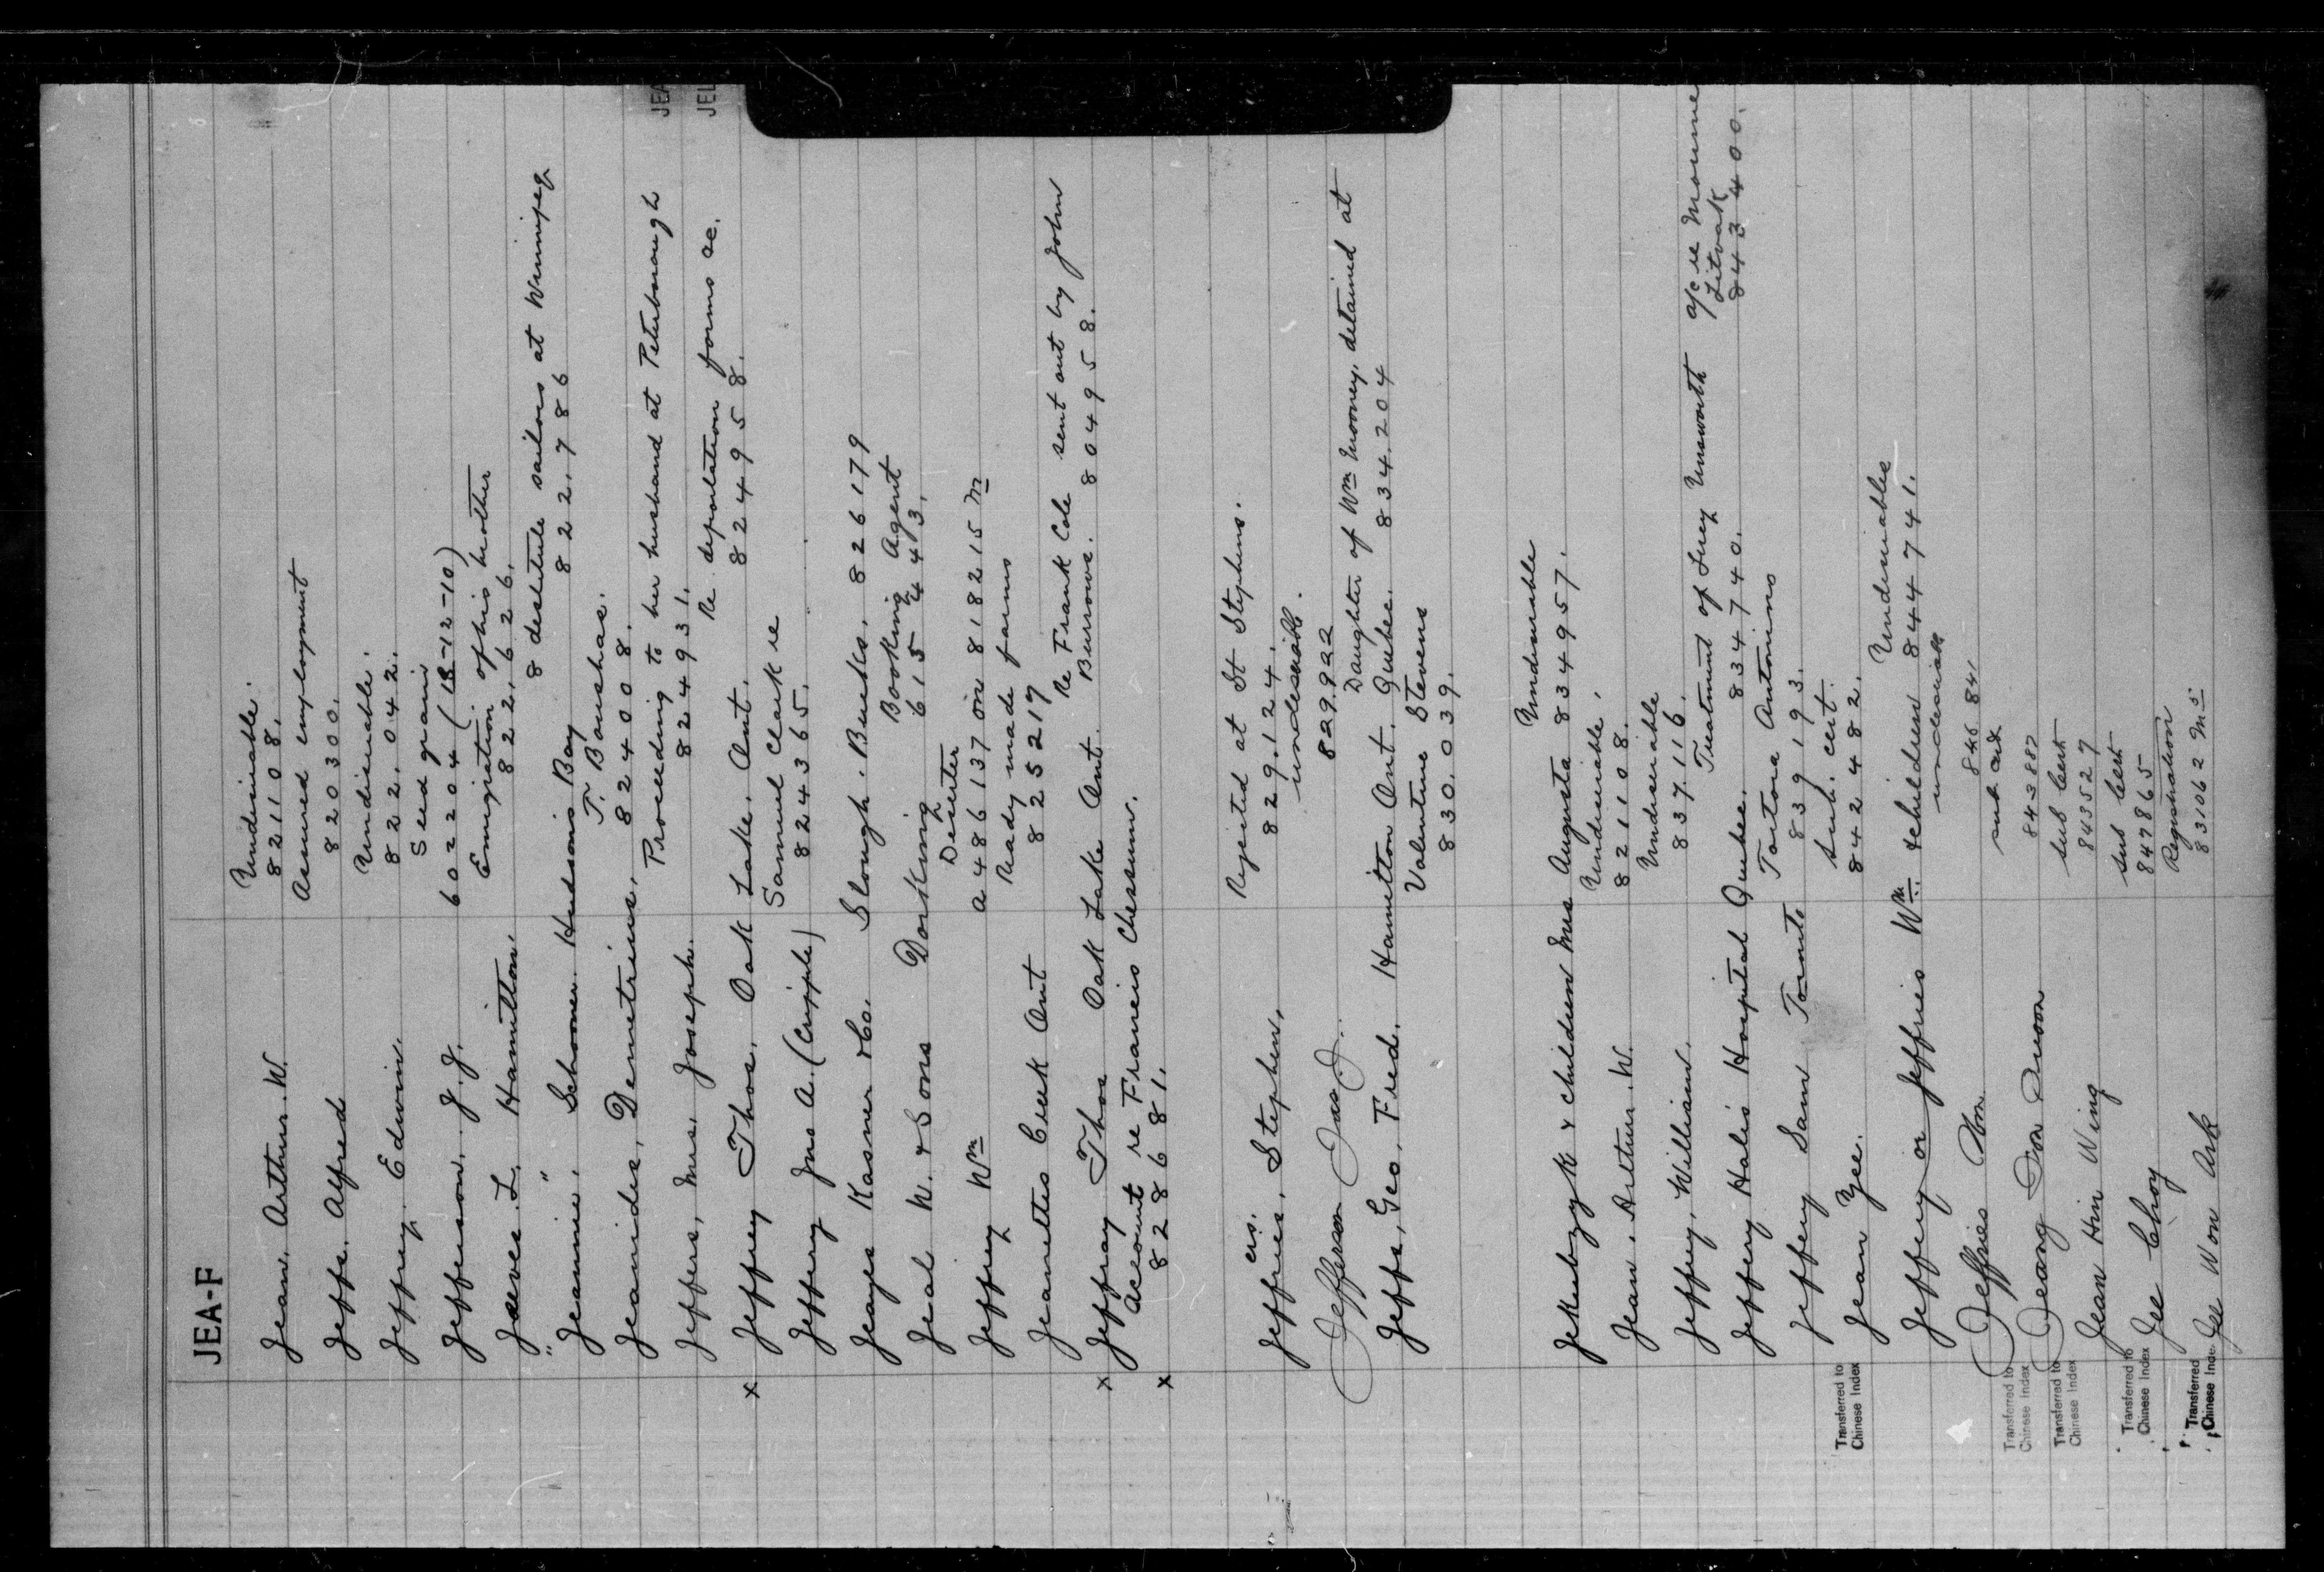 JEA-F
JEA
JEL
Jean, Arthur W. Undesirable.
821108.
Jeffs, Alfred Assured employment
820300.
Jeffrey, Edwin. Undesirable.
822.042.
Jefferson, J. J. Seed grain
602204 (13-12-10)
Jeeves L. Hamilton. Emigration of his brother
822,626.
"Jeannie", Schooner Hudson's Bay 8 destitute sailors at Winnipeg
822.786
Jeanides, Demetrius, T. Boushas.
824008.
Jeffers, Mrs. Joseph. Proceeding to her husband at Peterborough
824931.
x Jeffrey Thos. Oak Lake, Ont. Re deportation forms &c.
824958.
Jeffery Jno A. (Cripple) Samuel Clark re
824365.
Jeayes Kasner & Co. Slough. Bucks. 826179
Jeal W. & Sons Dorking Booking Agent
615443.
Jeffrey Wm Deserter
a 486137 on 818215 M
Jeanettes Creek Ont Ready made farms
825217
x Jeffray Thos Oak Lake Ont. Re Frank Cole sent out by John
Burrows. 804958.
x Account re Francis Chessum.
828681.
Jeffries, Stephen, Rejected at St Stephens.
eis. 829.124.
Jefferson Jas J. undesirable.
829.922
Jeffs, Geo, Fred. Hamilton Ont. Quebec. Daughter of Wm Mooney, detained at
834.204
Valentine Stevens
830.039.
Undesirable
& children Mrs Augusta 834957.
Jean, Arthur W. Undesirable,
821108.
Jeffrey, William. Undesirable
837.116.
Jeffery Hales Hospital Quebec. Treatment of Lucy Unsworth a/c re
834740. Litvak
843400.
Jeffery Sam Toronto Tortora Antonino
839193.
Transferred to
Chinese Index
Jean Yee. Sub. cert.
842482.
Jeffery or Jeffries Wm & children Undesirables
844741.
Jeffries undesirable
846841
Transferred to
Chinese Index
Jeang Don
843882
Transferred to
Chinese Index
Jean Hin Wing Sub Cert
843527
Transferred to
Chinese Index
Jee Choy Sub Cert
847865
Transferred
Chinese Inde
Jee Won Ark Registration
831062 M 5.